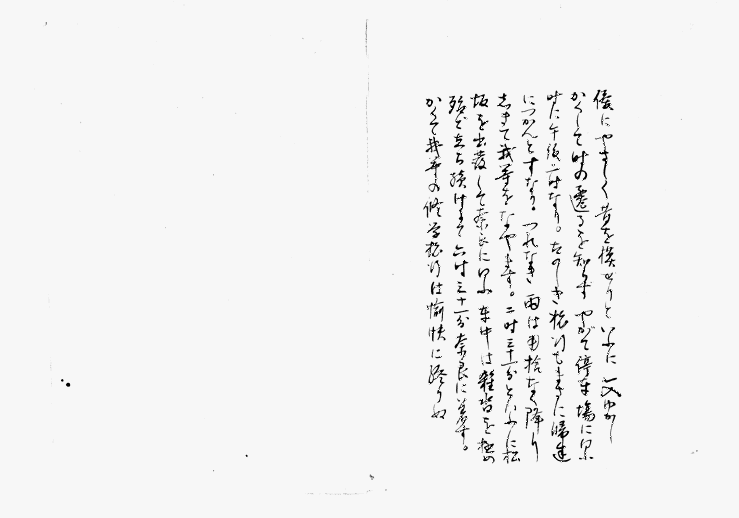 優にやさしく昔を偲せりといふに一入ゆかし
かくして時の遷るを知らず やがて停車場に向ふ
時に午後二時なり。たのしき旅行もまさに帰途
につかんとすなり。つれなき雨は用捨なく降り
しきて我等をなやます。二時三十一分といふに松
坂を出発して奈良に向ふ 車中は雑沓を極め
殆ど立ち続けにて六時三十一分奈良に着す。
かくて我等の修学旅行は愉快に終りぬ